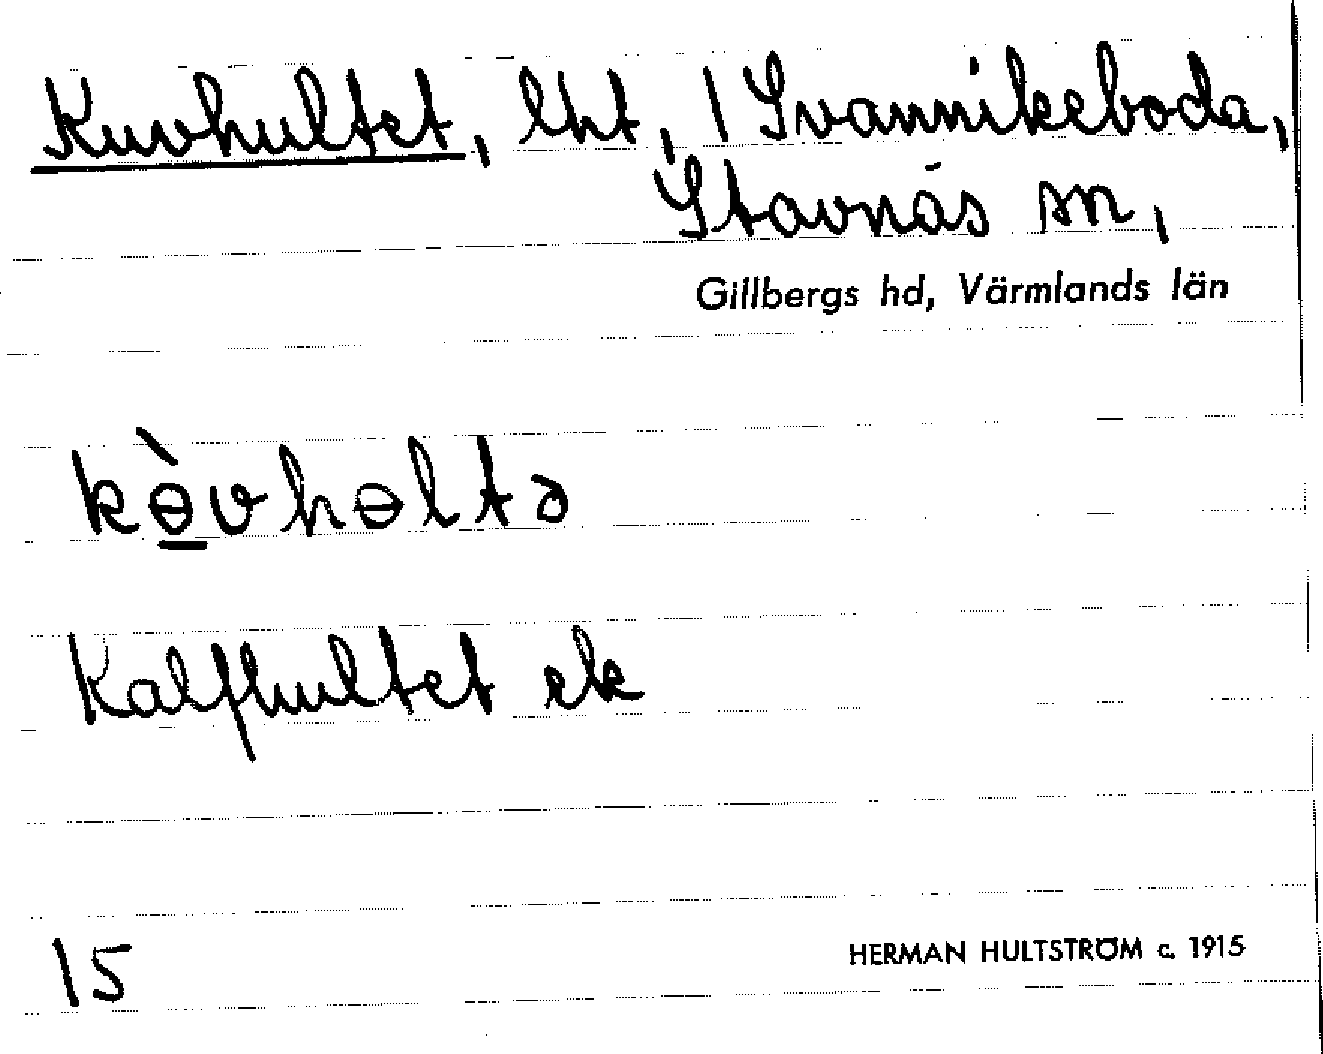 Kuvhultet, lht, 1 Svannikeboda,
Stavnäs sn,
Gillbergs hd, Värmlands län
kɵ̱̀vhɵltə
Kalfhultet ek
15
HERMAN HULTSTRÖM c. 1915